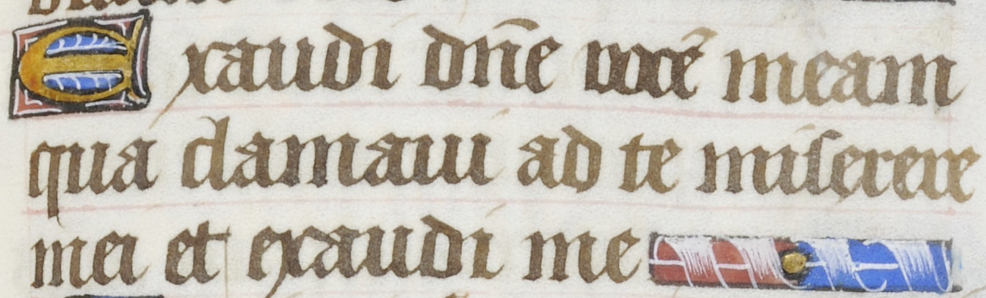 Exaudi dn̄e vocē meam
qua clamaui ad te miſerere
mei et exaudi me